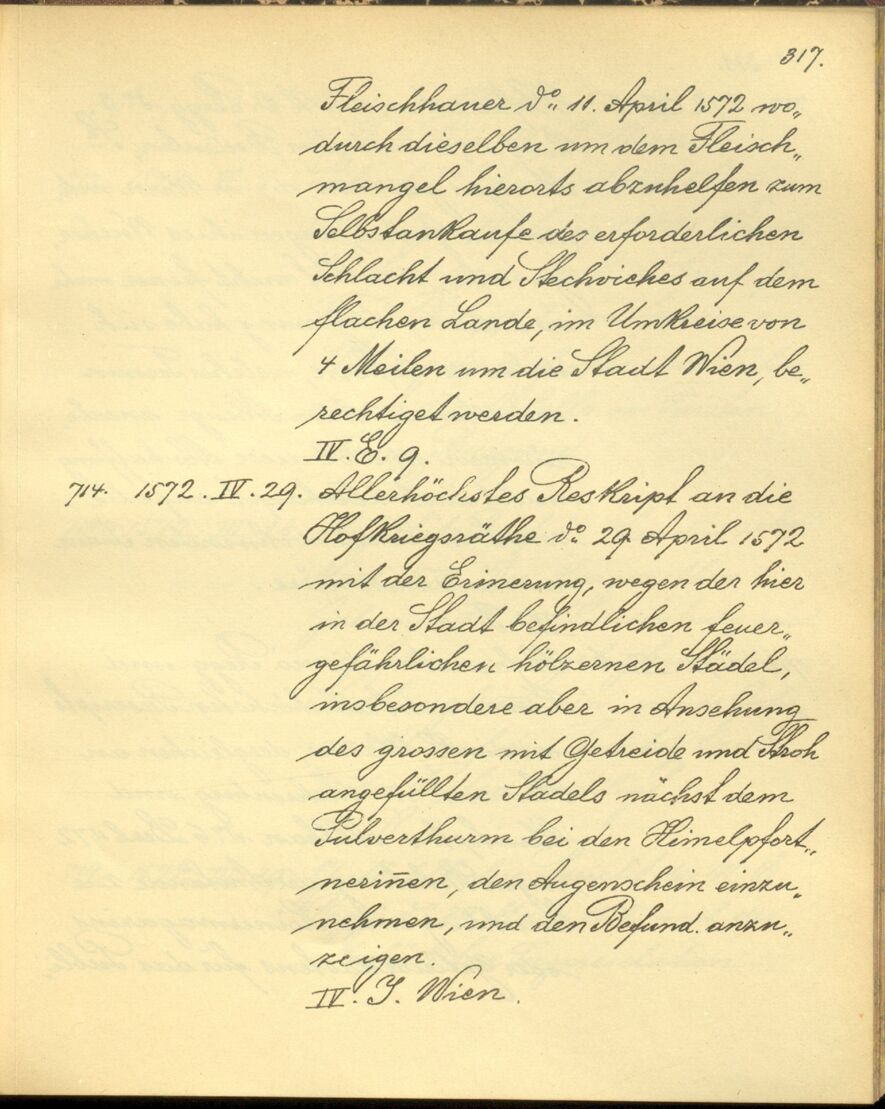 317.
Fleischhauer do. 11. April 1572 wo„
durch dieselben um dem Fleisch„
mangel hierorts abzuhelfen zum
Selbstankaufe des erforderlichen
Schlacht und Stechviches auf dem
flachen Lande, im Umkreise von
4 Meilen um die Stadt Wien, be„
rechtiget werden.
IV. E. 9.
714. 1572. IV. 29. Allerhöchstes Reskript an die
Hofkriegsräthe do. 29 April 1572
mit der Erinerung, wegen der hier
in der Stadt befindlichen feuer„
gefährlichen hölzernen Städel,
insbesondere aber in Ansehung
des grossen mit Getreide und Stroh
angefüllten Stadels nächst dem
Pulverthurm bei den Himelpfort„
nerin̄en, den Augenschein einzu„
nehmen, und den Befund. anzu„
zeigen.
IV. J. Wien.